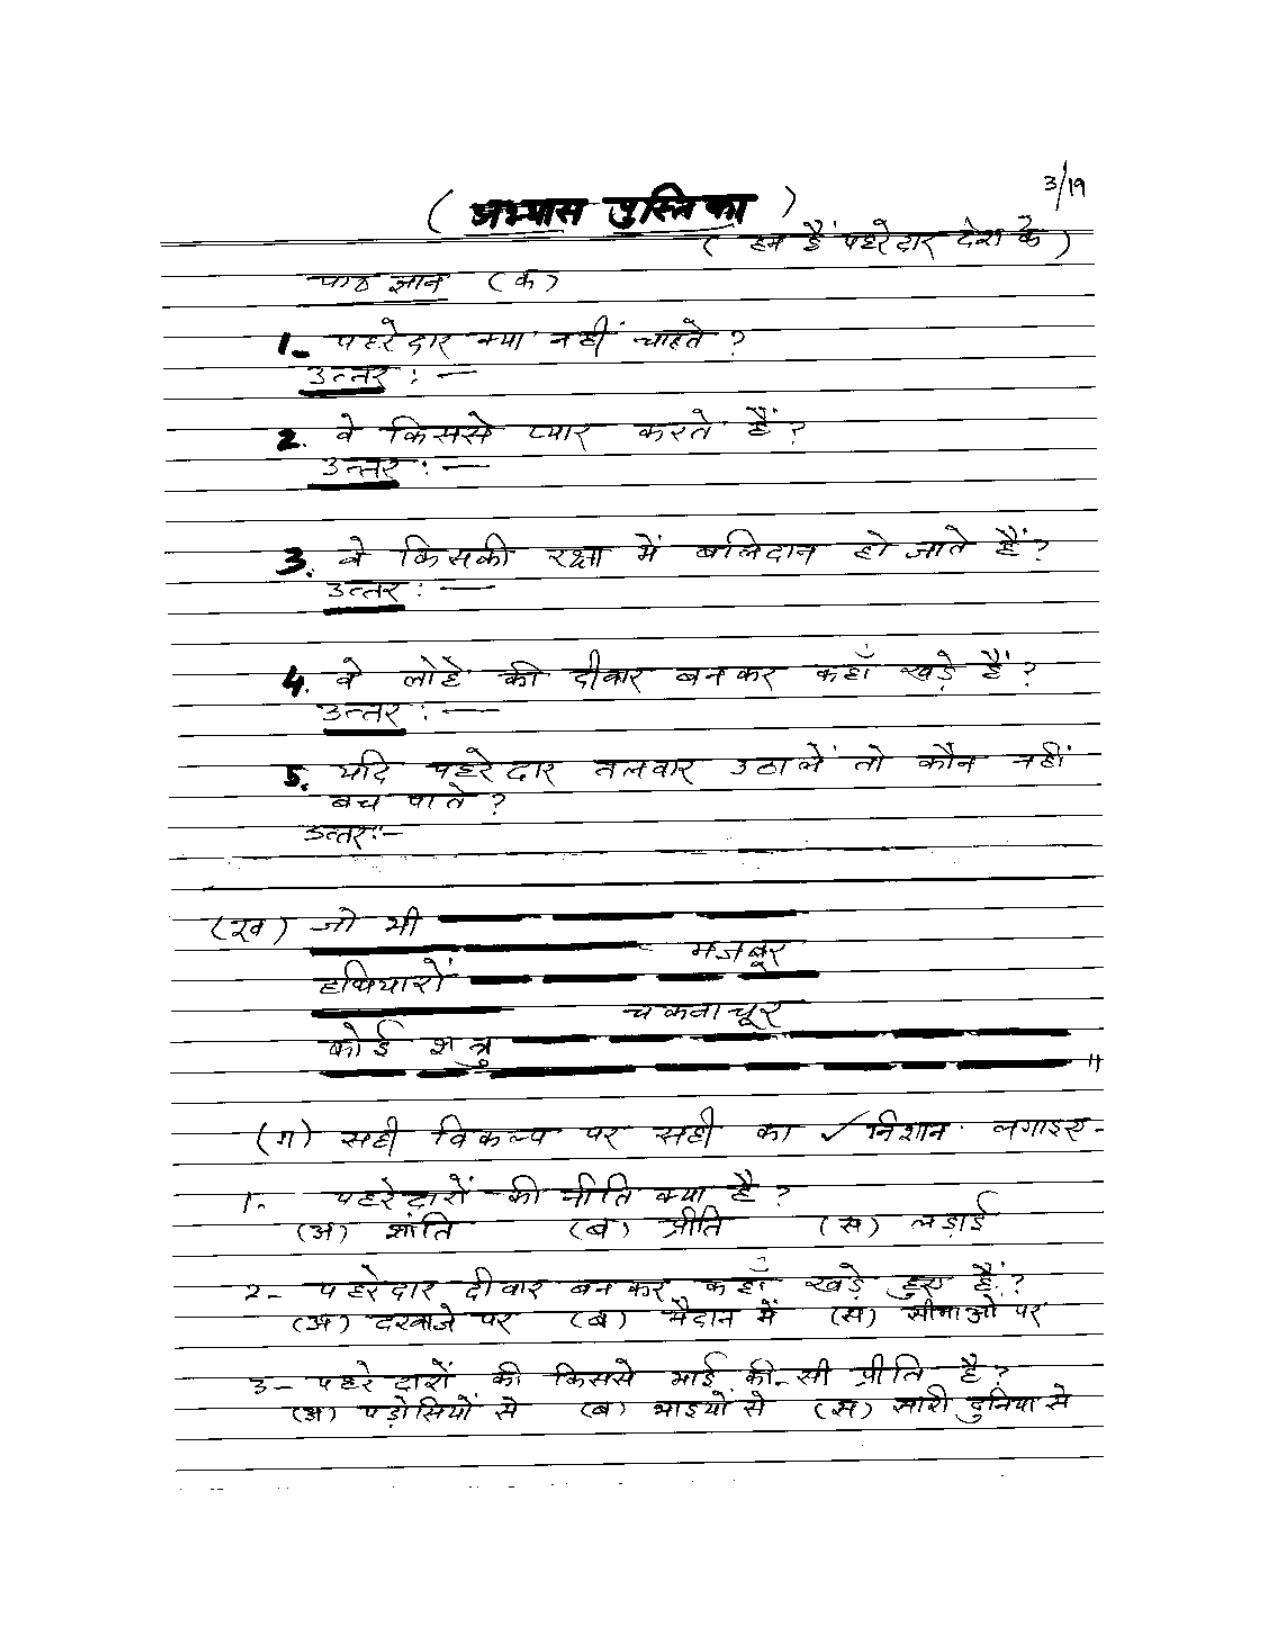 3/19
(अभ्यास पुस्तिका)
(हम हैं पहरेदार देश के)
पाठ ज्ञान (क)
1- पहरेदार क्या नहीं चाहते?
उत्तर:—
2. वे किससे प्यार करते हैं?
उत्तर:—
3. वे किसकी रक्षा में बलिदान हो जाते हैं?
उत्तर:—
4. वे लोहे की दीवार बनकर कहाँ खड़े हैं?
उत्तर:—
5. यदि पहरेदार तलवार उठा लें तो कौन नहीं
बच पाते?
उत्तर:-
(ख) जो भी
मजबूर
हथियारों
चकनाचूर
कोई शत्रु
॥
(ग) सही विकल्प पर सही का ✓ निशान लगाइए-
1.- पहरेदारों की नीति क्या है?
(अ) शांति (ब) प्रीति (स) लड़ाई
2- पहरेदार दीवार बनकर कहाँ खड़े हुए हैं?
(अ) दरवाजे पर (ब) मैदान में (स) सीमाओ पर
3- पहरेदारों की किससे भाई की-सी प्रीति है?
(अ) पड़ोसियों से (ब) भाइयों से (स) सारी दुनिया से